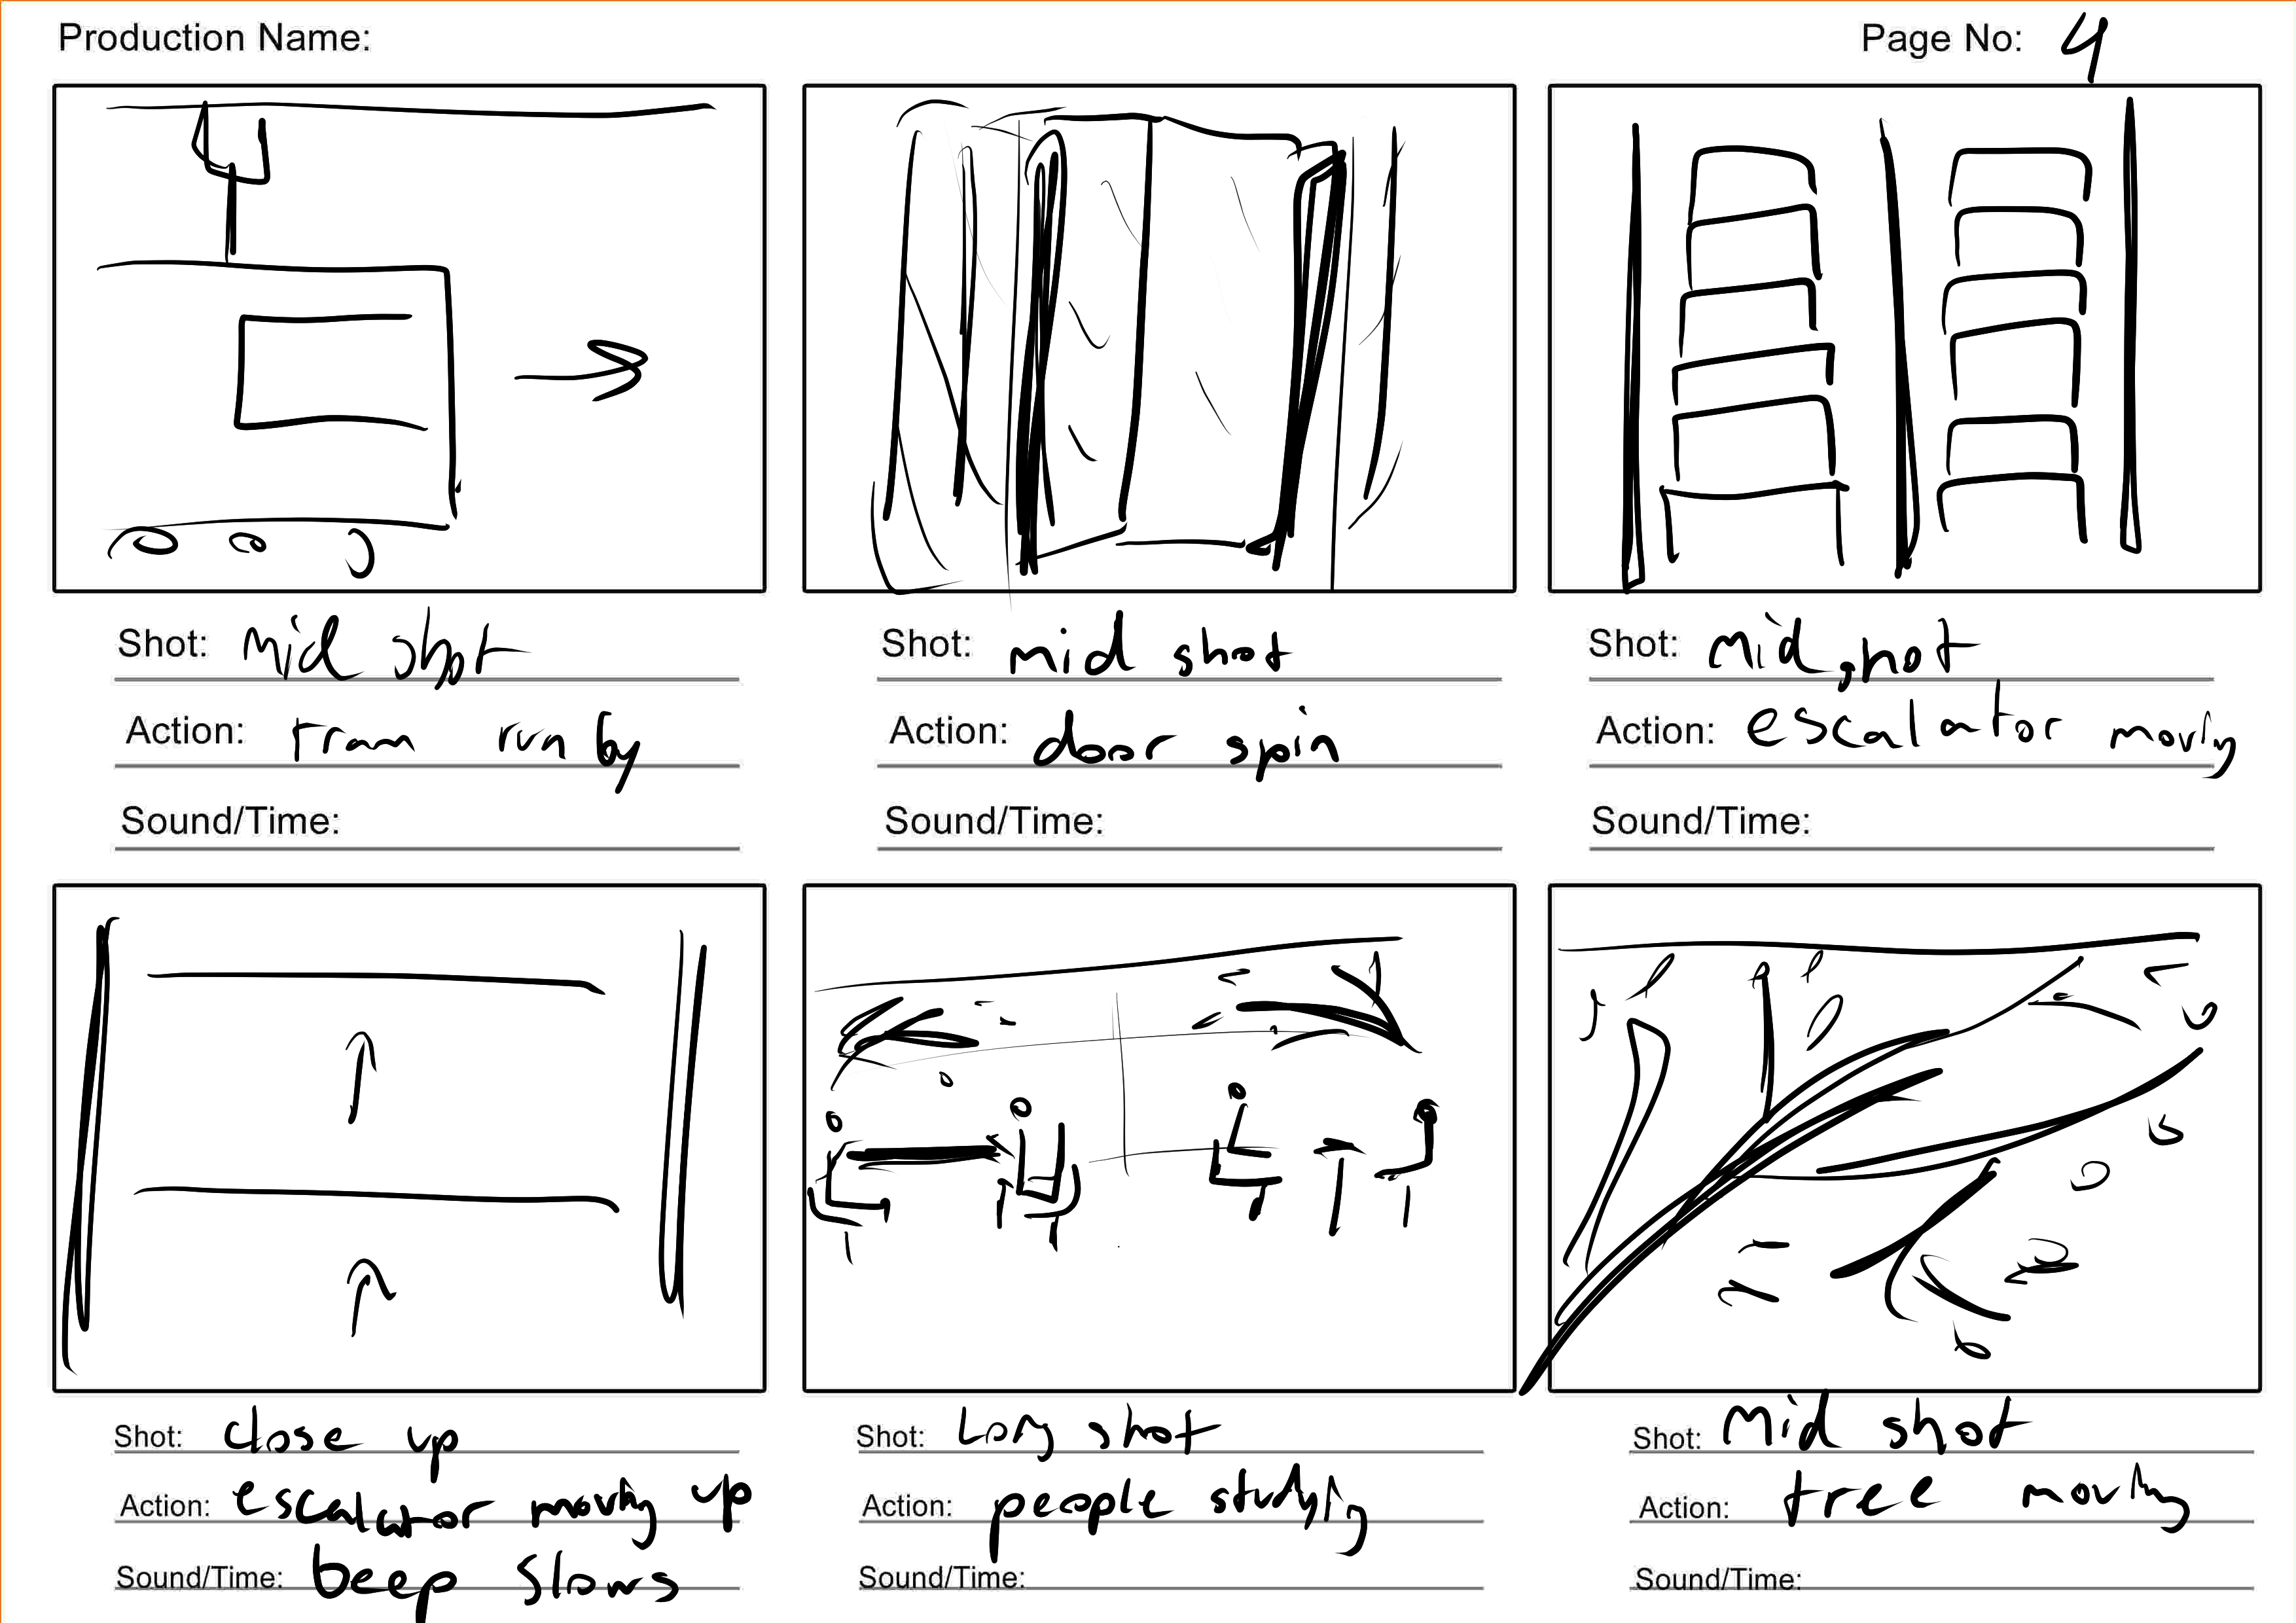 Production Name:
Page No: 4
Shot: mid shot
Action: tram run by
Sound/Time:
Shot: mid shot
Action: door spin
Sound/Time:
Shot: mid shot
Action: escalator moving
Sound/Time:
Shot: close up
Action: escalator moving up
Sound/Time: beep slows
Shot: Long shot
Action: people studying
Sound/Time:
Shot: Mid shot
Action: tree moving
Sound/Time: